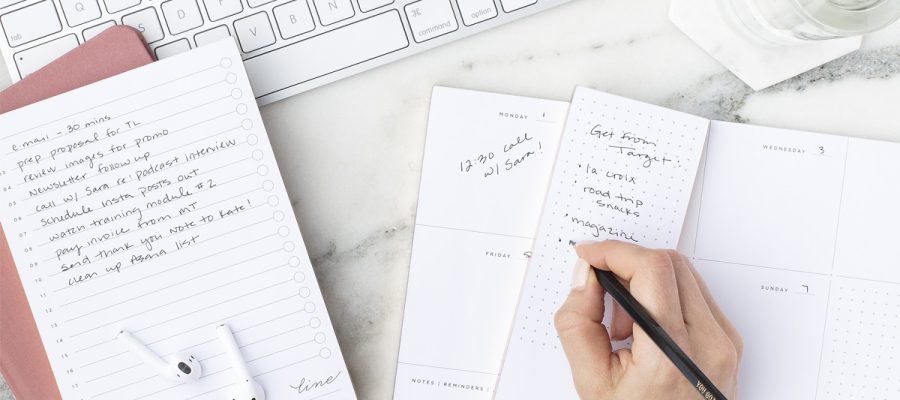 tab
Q
A
S
D
F
Z
X
C
V
B
N
M
⌘
command
option
e.mail - 30 mins
prep proposal for TL
03 review images for promo
04 Newsletter follow up
05 call w/ Sara re: Podcast interview
06 schedule Insta posts out
07 watch training module #2
08 pay invoice from MT
09 send thank you note to Kate!
10 clean up Asana list
11
12
13
14
15
16
17
line
MONDAY 1
12:30 call
w/ Sara!
FRIDAY 5
NOTES | REMINDERS
Get from
Target:
• la croix
• road trip
snacks
• magazine
WEDNESDAY 3
SUNDAY 7
YOU GO